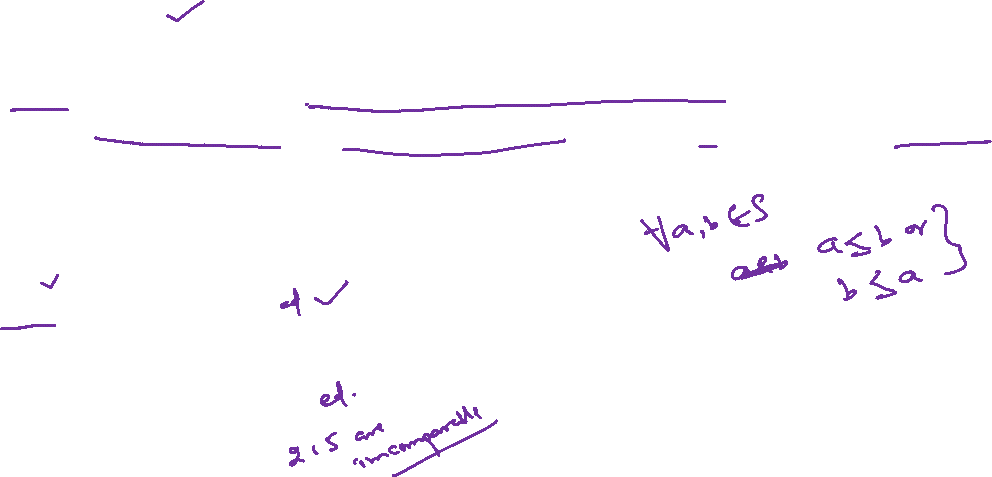 ∀a,b ∈ S
a ≤ b or
b ≤ a
d
ed.
2, 5 are
incomparable